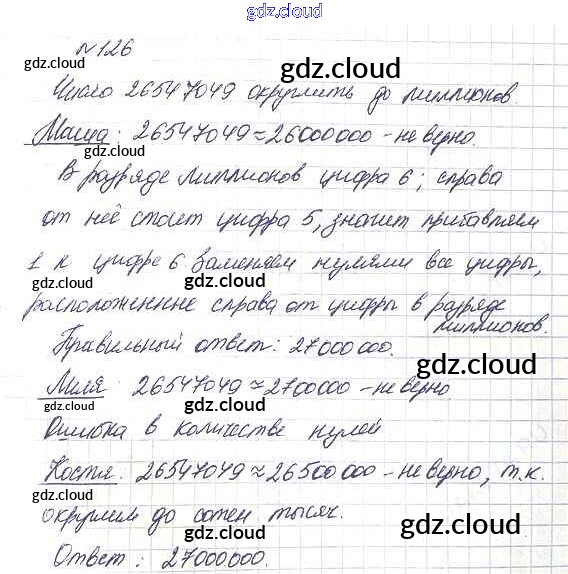 gdz.cloud
№126
gdz.cloud gdz.cloud
Число 26547049 округлить до миллионов.
Маша: 26547049≈26000000 - не верно.
gdz.cloud
В разряде миллионов цифра 6; справа
от неё стоит цифра 5, значит прибавляем
gdz.cloud gdz.cloud
1 к цифре 6 заменяем нулями все цифры,
расположенные справа от цифры в разряде
миллионов.
gdz.cloud gdz.cloud
Правильный ответ: 27000000.
gdz.cloud
Миля: 26547049≈2700000 - не верно.
gdz.cloud gdz.cloud
Ошибка в количестве нулей
Костя: 26547049≈26500000 - не верно, т.к.
gdz.cloud gdz.cloud
округлили до сотен тысяч.
gdz.cloud
Ответ: 27000000.
gdz.cloud